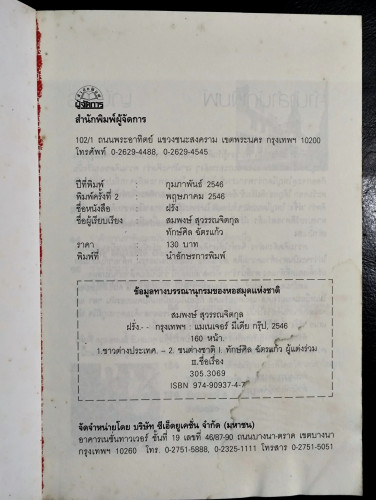 ผู้จัดการ
สำนักพิมพ์ผู้จัดการ
102/1 ถนนพระอาทิตย์ แขวงชนะสงคราม เขตพระนคร กรุงเทพฯ 10200
โทรศัพท์ 0-2629-4488, 0-2629-4545
ปีที่พิมพ์ : กุมภาพันธ์ 2546
พิมพ์ครั้งที่ 2 : พฤษภาคม 2546
ชื่อหนังสือ : ฝรั่ง
ชื่อผู้เรียบเรียง : สมพงษ์ สุวรรณจิตกุล
ทักษ์ศิล ฉัตรแก้ว
ราคา : 130 บาท
พิมพ์ที่ : นำอักษรการพิมพ์
ข้อมูลทางบรรณานุกรมของหอสมุดแห่งชาติ
สมพงษ์ สุวรรณจิตกุล
ฝรั่ง.-- กรุงเทพฯ : แมเนเจอร์ มีเดีย กรุ๊ป, 2546
160 หน้า.
1.ชาวต่างประเทศ. – 2. ชนต่างชาติ I. ทักษ์ศิล ฉัตรแก้ว ผู้แต่งร่วม
II.ชื่อเรื่อง
305.3069
ISBN 974-90937-4-7
จัดจำหน่ายโดย บริษัท ซีเอ็ดยูเคชั่น จำกัด (มหาชน)
อาคารเนชั่นทาวเวอร์ ชั้นที่ 19 เลขที่ 46/87-90 ถนนบางนา-ตราด เขตบางนา
กรุงเทพฯ 10260 โทร. 0-2751-5888, 0-2325-1111 โทรสาร 0-2751-5051